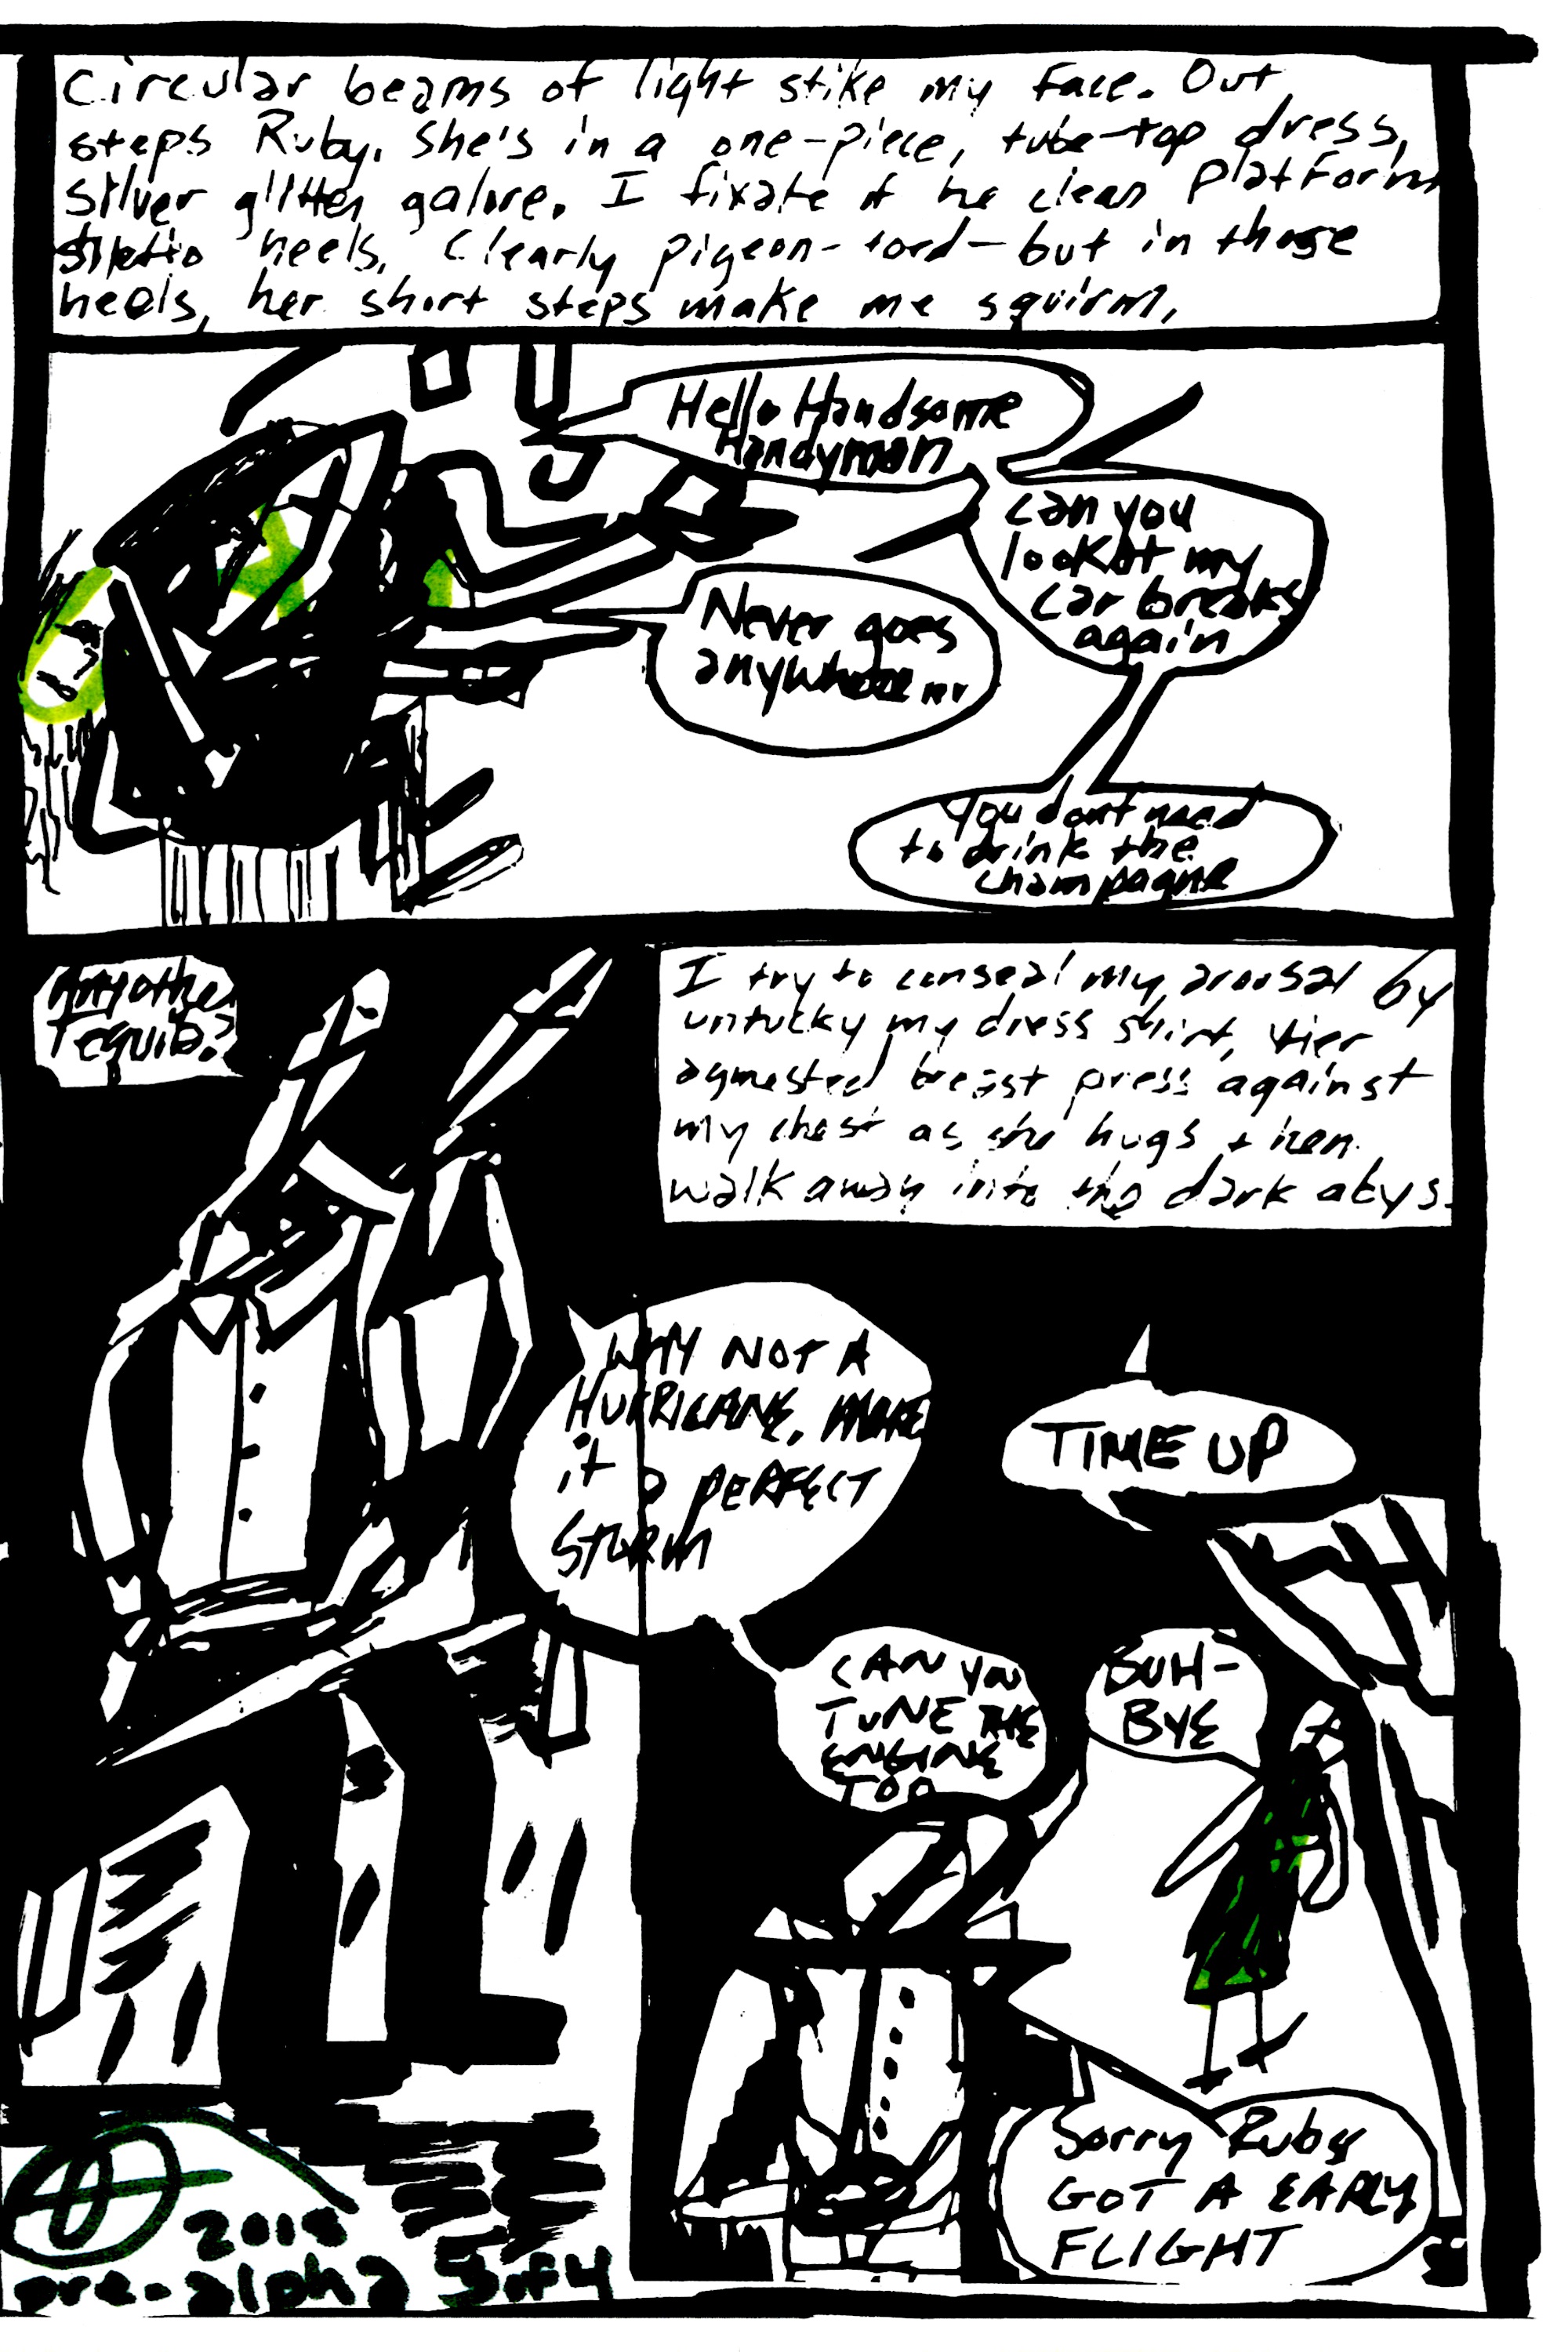 Circular beams of light stike my face. Out
steps Ruby. She's in a one-piece, tube-top dress,
silver glitter galore. I fixate at he clear platform
stiletto heels. Clearly pigeon-toed—but in those
heels, her short steps make me squirm.
Hello Handsome
Handyman
Can you
look at my
car breaks
again
Never goes
anywhere...
You dont need
to drink the
champagne
Another
Tequila?
I try to conseal my arousal by
untucky my dress shirt. Her
breast press against
my chest as she hugs then
walk away into the dark abys.
WHY NOT A
HURRICANE, MAKE
it a PERFECT
STORM
TIME UP
CAN YOU
TUNE THE
ENGINE
TOO
BUH-
BYE
Sorry Ruby
GOT A EARLY
FLIGHT
pre-alpha 5 of 4